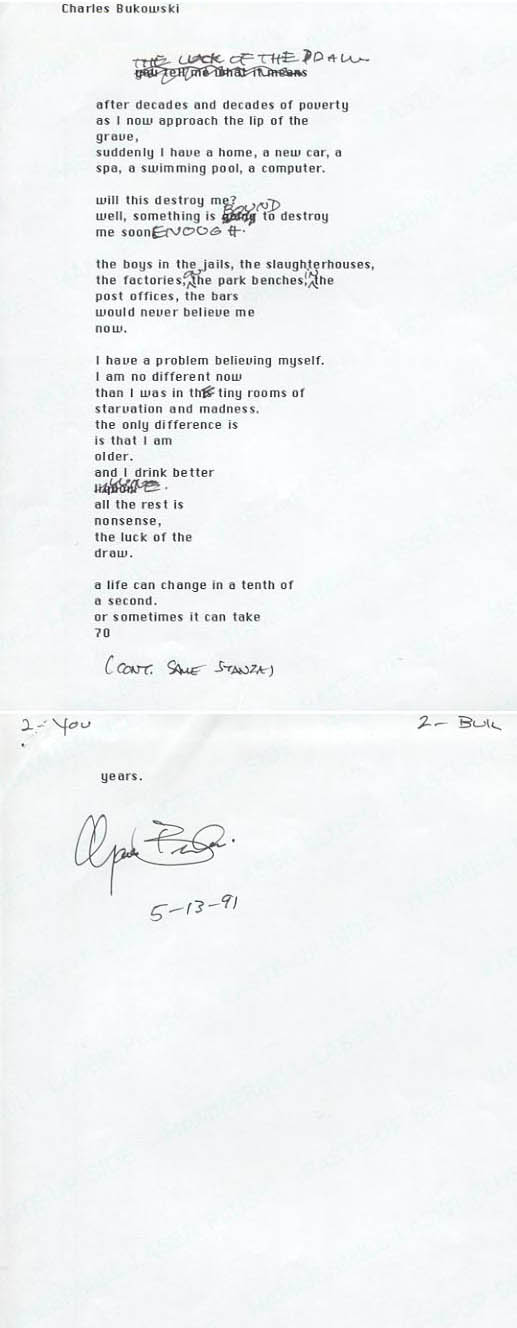 Charles Bukowski
THE LUCK OF THE DRAW
you tell me what it means
after decades and decades of poverty
as I now approach the lip of the
grave,
suddenly I have a home, a new car, a
spa, a swimming pool, a computer.
will this destroy me?
BOUND
well, something is going to destroy
me soon ENOUGH.
the boys in the jails, the slaughterhouses,
the factories, ON the park benches, IN the
post offices, the bars
would never believe me
now.
I have a problem believing myself.
I am no different now
than I was in the tiny rooms of
starvation and madness.
the only difference is
is that I am
older.
and I drink better
WINE.
all the rest is
nonsense,
the luck of the
draw.
a life can change in a tenth of
a second.
or sometimes it can take
70
(CONT. SAME STANZA)
2- YOU 2- BUK
years.
5-13-91